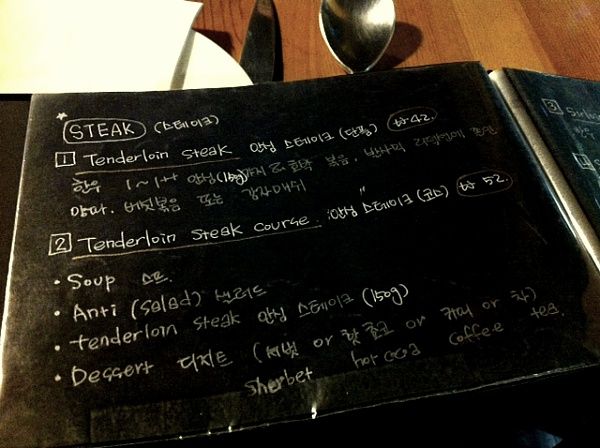 STEAK (스테이크)
1 Tenderloin steak 안심 스테이크 (단품) ₩42.
한우 1~1++ 안심(150g) 볶음,
양파, 버섯볶음 또는 감자매쉬
2 Tenderloin steak course 안심 스테이크 (코스) ₩52.
• Soup 스프
• Anti (Salad) 샐러드
• tenderloin steak 안심 스테이크 (150g)
• Dessert 디저트 (셔벗 or 핫초코 or 커피 or 차)
sherbet hot coca coffee tea.
3
4